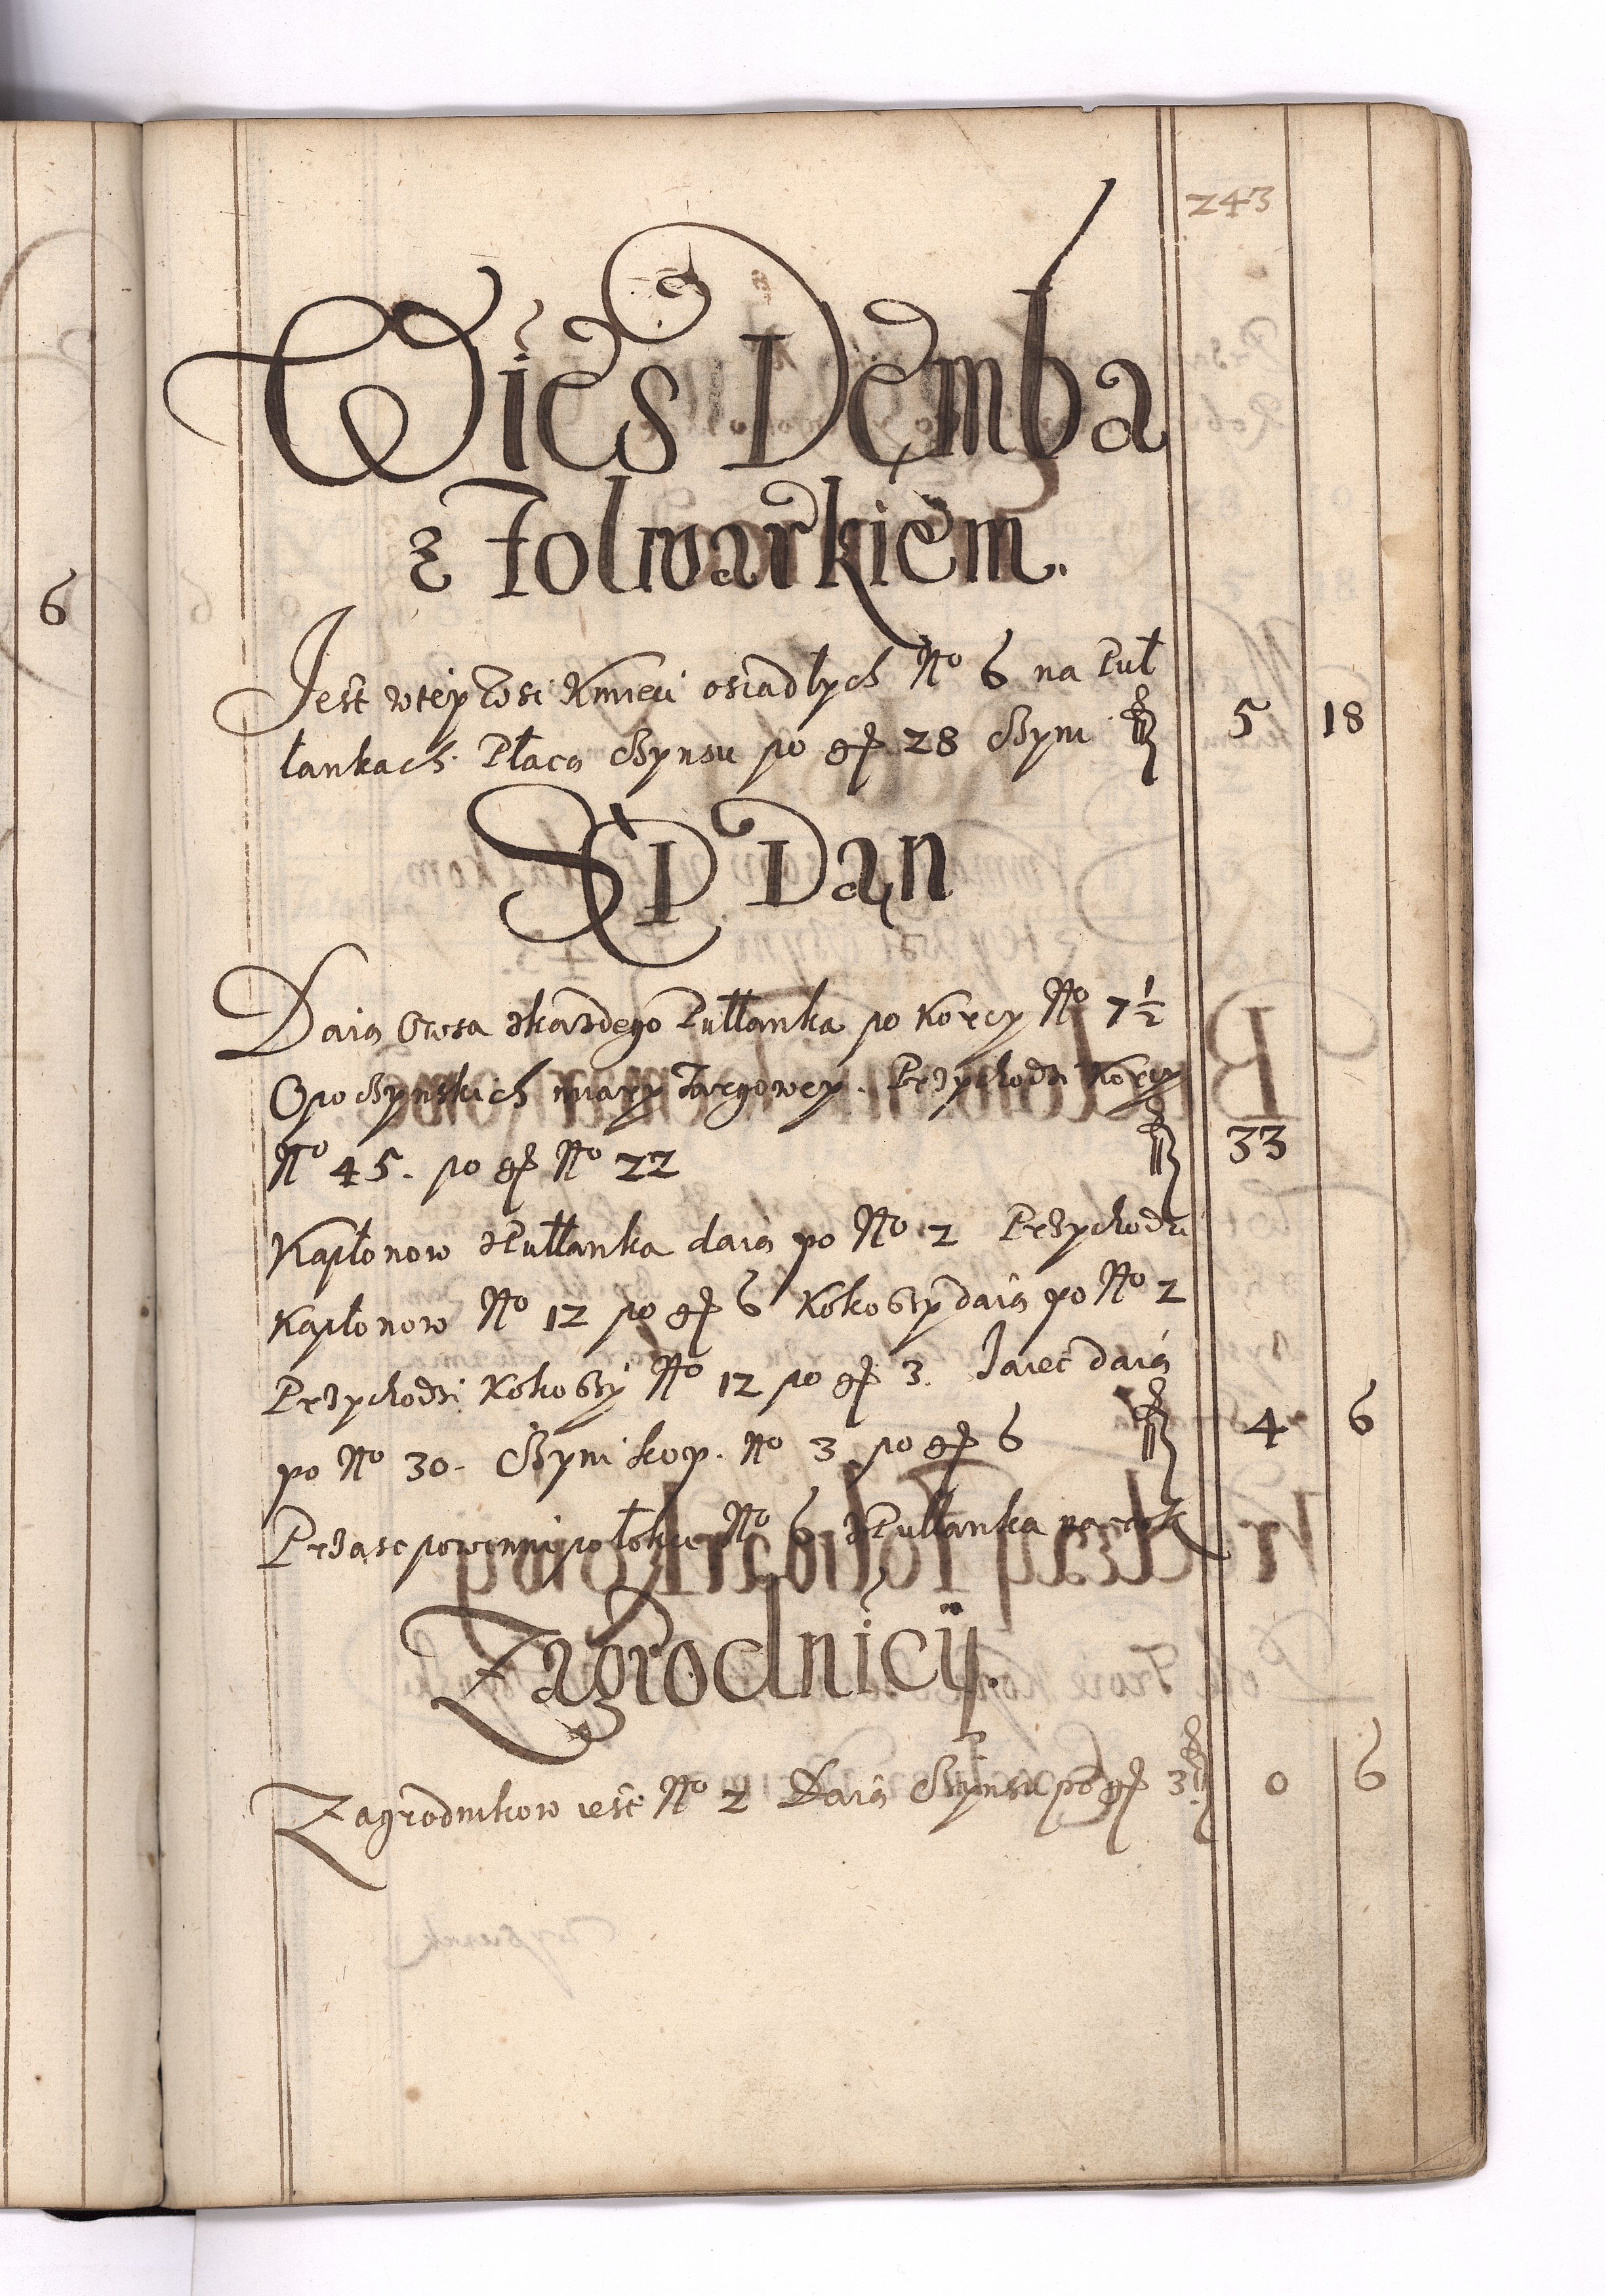 243
Wies Demba
z Folwarkiem.
Jest wtey Wsi Kmieci osiadłych No 6 na Puł 5 18
łankach. Płacą Czynsu po gr 28 Czyni fl
Dan
Daią Owsa zkazdego Pułłanka po Korcy No 7 1/2
Opoczynskich miary Targowey. Przychodzi Korcy
No 45. po gr No 22 fl 33
Kapłonow zPułłanka daią po No 2 Przychodzi
Kapłonow No 12 po gr 6 Kokoszy daią po No 2
Przychodzi Kokoszy No 12 po gr 3. Jaiec daią
po No 30. Czyni kop. No 3 po gr 6 fl 4 6
Przasc powinni po łokci No 6 zPułłanka na rok
Zagrodnicy.
Zagrodnikow iest No 2 Daią Czynszu po gr 3. fl 0 6
6